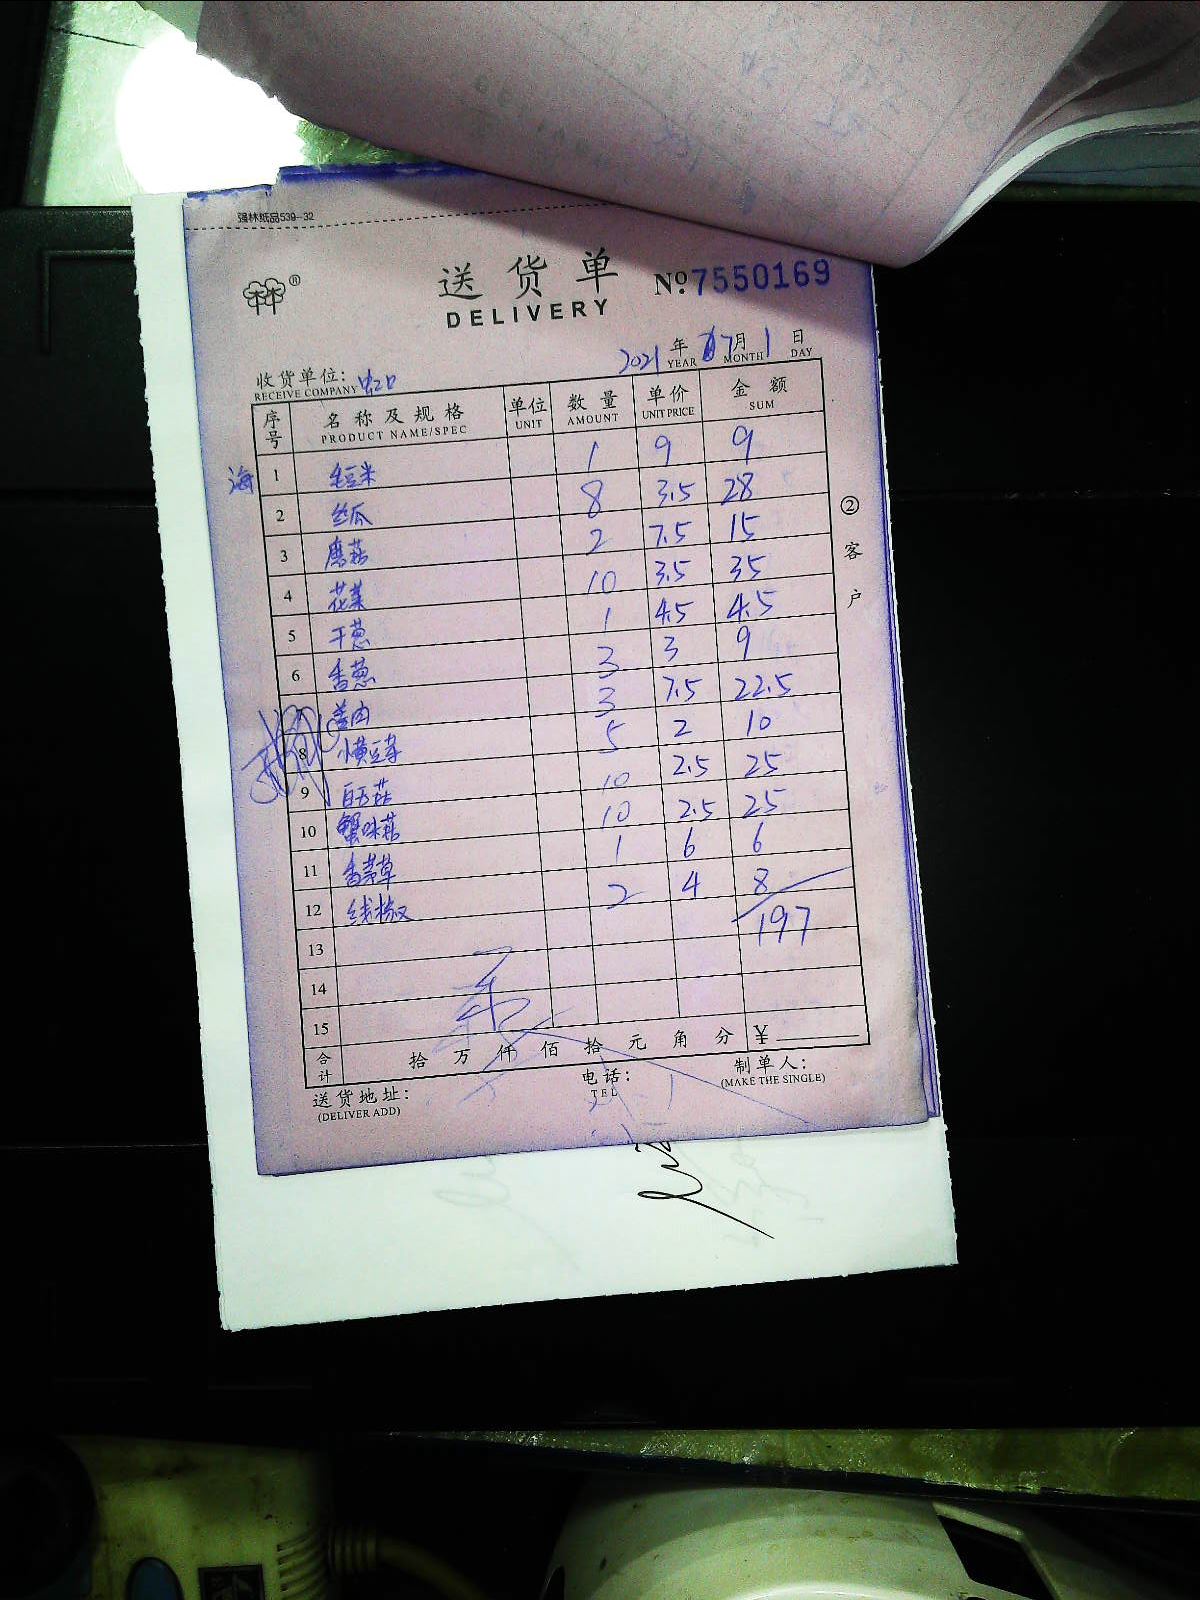 强林纸品539-32
林®
送货单 No:7550169
DELIVERY
2021年7月1日
YEAR MONTH DAY
收货单位：虹口
RECEIVE COMPANY
序号 名称及规格 单位 数量 单价 金额
PRODUCT NAME/SPEC UNIT AMOUNT UNIT PRICE SUM
海 1 毛豆米 1 9 9
2 丝瓜 8 3.5 28
3 磨菇 2 7.5 15
4 花菜 10 3.5 35
5 干葱 1 4.5 4.5
6 香葱 3 3 9
7 姜肉 3 7.5 22.5
8 小黄豆芽 5 2 10
9 白玉菇 10 2.5 25
10 蟹味菇 10 2.5 25
11 香茅草 1 6 6
12 线椒 2 4 8
13 197
14
15
合计 拾万仟佰拾元角分 ¥
② 客户
送货地址： 电话： 制单人：
(DELIVER ADD) TEL (MAKE THE SINGLE)